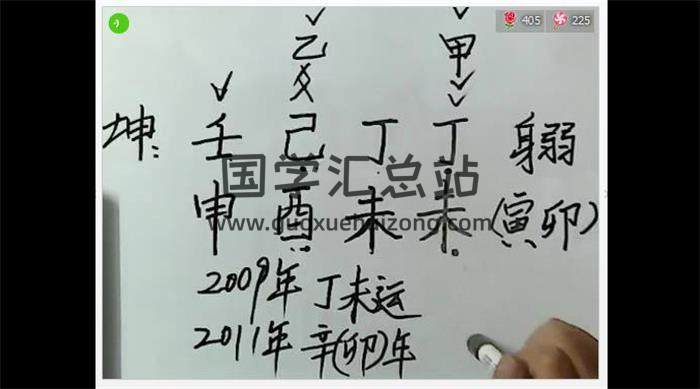 405 225
乙 甲
坤: 壬 己 丁 丁 身弱
国学汇总站
申 酉 未 未 (寅卯)
www.guoxuehuizong.com
2009年 丁未运
2011年 辛(卯)年